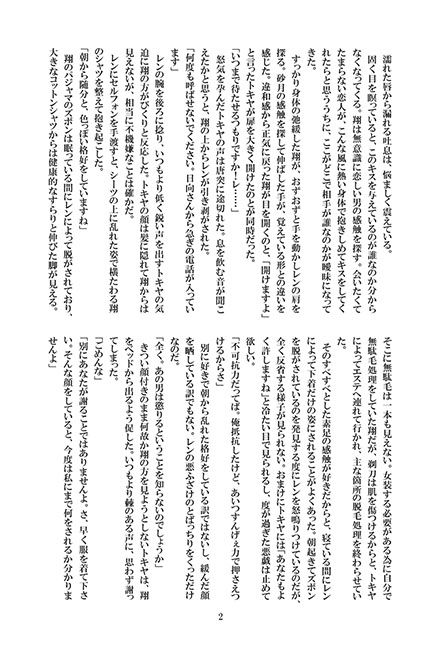 濡れた唇から漏れる吐息は、悩ましく震えている。
　固く目を瞑っていると、このキスを与えているのが誰なのか分から
なくなってくる。翔は無意識に恋しい男の感触を探す。会いたくて
たまらない恋人が、こんな風に熱い身体で抱きしめてキスをしてく
れたらと思ううちに、ここがどこで相手が誰なのかが曖昧になって
きた。
　すっかり身体の弛緩した翔が、おずおずと手を動かしレンの肩を
探る。砂月の感触を探して伸ばした手が、覚えている形との違いを
感じた。違和感から正気に戻った翔が目を開くのと、「開けますよ」
と言ったトキヤが扉を大きく開けたのとが同時だった。
「いつまで待たせるつもりですか─レ……」
　怒気を孕んだトキヤの声は唐突に途切れた。息を飲む音が聞こ
えたかと思うと、翔の上からレンが引き剥がされた。
「何度も呼ばせないでください。日向さんから急ぎの電話が入ってい
ます」
　レンの腕を後ろに捻り、いつもより低く鋭い声を出すトキヤの気
迫に翔の方がびくりと反応した。トキヤの顔は髪に隠れて翔からは
見えないが、相当に不機嫌なことは確かだ。
　レンにセルフォンを手渡すと、シーツの上に乱れた姿で横たわる翔
のシャツを整えて抱き起こした。
「朝から随分と、色っぽい格好をしていますね」
　翔のパジャマのズボンは眠っている間にレンによって脱がされており、
大きなコットンシャツからは健康的なすらりと伸びた脚が見える。
そこに無駄毛は一本も見えない。女装する必要がある為に自分で
無駄毛処理をしていた翔だが、剃刀は肌を傷つけるからと、トキヤ
によってエステへ連れて行かれ、主な箇所の脱毛処理を終わらせてい
た。
　そのすべすべとした素足の感触が好きだからと、寝ている間にレン
によって下着だけの姿にされることがよくあった。朝起きてズボン
を脱がされているのを発見する度にレンを怒鳴りつけているのだが、
全く反省する様子が見られない。おまけにトキヤには「あなたもよ
く許しますね」と冷たい目で見られるし、度が過ぎた悪戯は止めて
欲しい。
「不可抗力だってば。俺抵抗したけど、あいつすんげぇ力で押さえつ
けるからさ」
　別に好きで朝から乱れた格好をしている訳ではないし、緩んだ顔
を晒している訳でもない。レンの悪ふざけのとばっちりをくっただけ
なのだ。
「全く。あの男は懲りるということを知らないのでしょうか」
　きつい顔付きのまま何故か翔の方を見ようとしないトキヤは、翔
をベッドから出るよう促した。いつもより棘のある声に、思わず謝っ
てしまった。
「ごめんな」
「別にあなたが謝ることではありませんよ。さ、早く服を着て下さ
い。そんな顔をしていると、今度は私にまで何をされるか分かりま
せんよ」
2